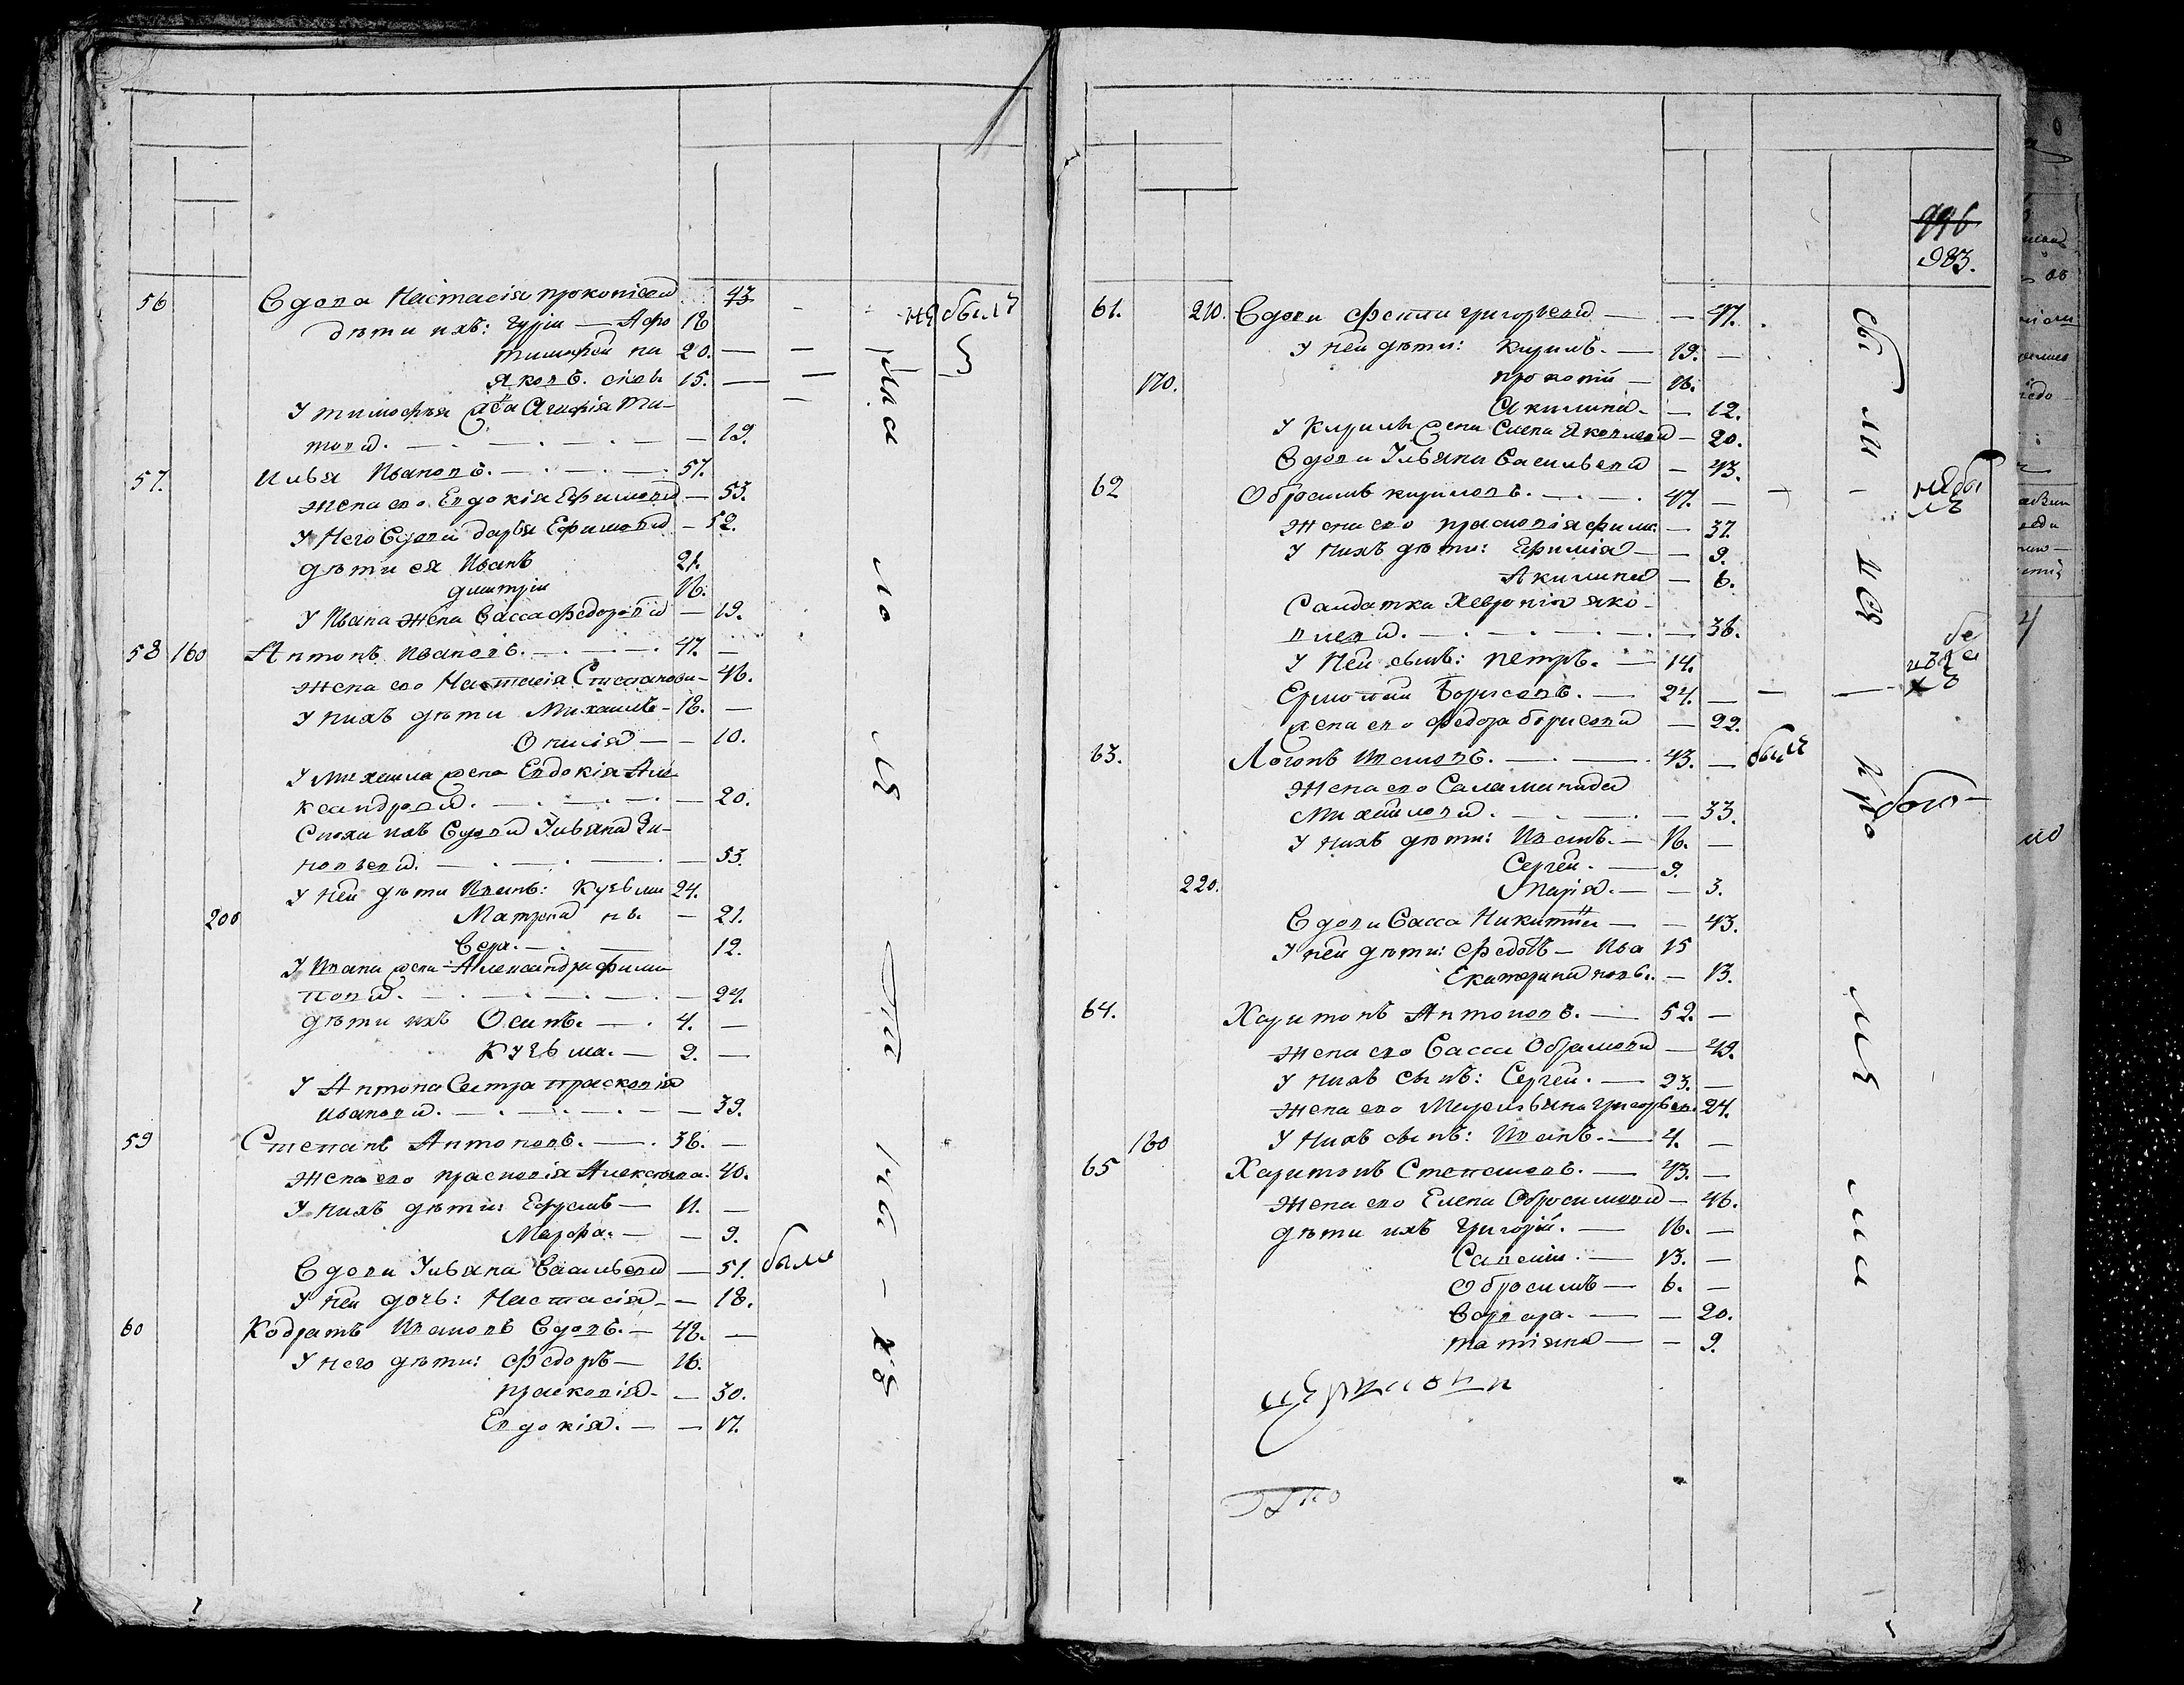 56 Вдова Настасія прокопіева 43 не былъ
дѣти ихъ: Гурiи — Афо 18
тимофеи на 20. —
Яковъ. сьевы 15. —
У тимофея жена Агафія Ти-
това. — 19.
57. Илья Ивановъ. — 57.
жена его Евдокія Ефимова — 53.
У Него Вдова дарья Ефимова — 52.
дѣти ея Иванъ 21.
дмитріи 16.
У Ивана жена Васса федорова — 19.
58 160 Антонъ Ивановъ. — 47. —
жена его Настасія Степанова — 46.
У нихъ дѣти Михаила — 18. —
Онисія — 10.
У Михаила жена Евдокія Але
ксандрова. — 20.
Сноха ихъ Вдова Ульяна Зи-
новьева. — 53.
У ней дѣти Иванъ: Кузьми 24.
200 Матрона нъ. — 21.
Вера. — 12.
У Ивана жена Александра фили
пова. — 24.
дѣти ихъ Осипъ. — 4. —
Кузьма. — 2. —
У Антона Сестра прасковія
Иванова. — 39.
59 Степанъ Антоновъ. — 38. —
жена его прасковія Алексѣева. 40.
У нихъ дѣти: Ефремъ — 11. —
Марфа. — 9.
Вдова Ульяна Васильева — 51. была
У ней дочь: Настасія — 18.
60 Кодратъ Ивановъ Вдовъ. — 48. —
У него дѣти: Федоръ — 16.
прасковія — 30.
Евдокія. — 17.
996
983.
61. 210. Вдова Григорьева — 47.
У ней дѣти: Кирилъ. — 19. —
170. прокопій — 16.
Акилина — 12.
У Кирилы жена Елена Яковлева — 20.
Вдова Ульяна Васильева — 43.
62 Обросимъ кириловъ. — 47. — не бы
лъ
жена его прасковія — 37.
У нихъ дѣти: Ефимія — 9.
Акилина — 6.
Салдатка Хевронія яко-
влева. — 38.
У ней сынъ: петръ. — 14.
Ермолай Борисовъ. — 24. —
жена его федора борисова — 22.
63. Логонъ Ивановъ. — 43. — былъ
Жена его Саламанида
Михаилова. — 33.
У нихъ дѣти: Иванъ. — 16. —
Сергей. — 9.
220. Марія. — 3.
Вдова Васса Никитина — 43.
У ней дѣти: Федотъ — Ива 15
Екатерина новы. — 13.
64. Харитонъ Антоновъ. — 52. —
жена его Васса Обрамова — 49.
У нихъ сынъ: Сергей. — 23. —
жена его Григорьев. 24.
160 У нихъ сынъ: Иванъ. — 4. —
65 Харитонъ Степановъ. — 43. —
жена его Елена Обросимова — 46.
дѣти ихъ Григорій. — 16. —
Савелій. — 13. —
Обросимъ — 6. —
Варвара. — 20.
татіяна — 9.